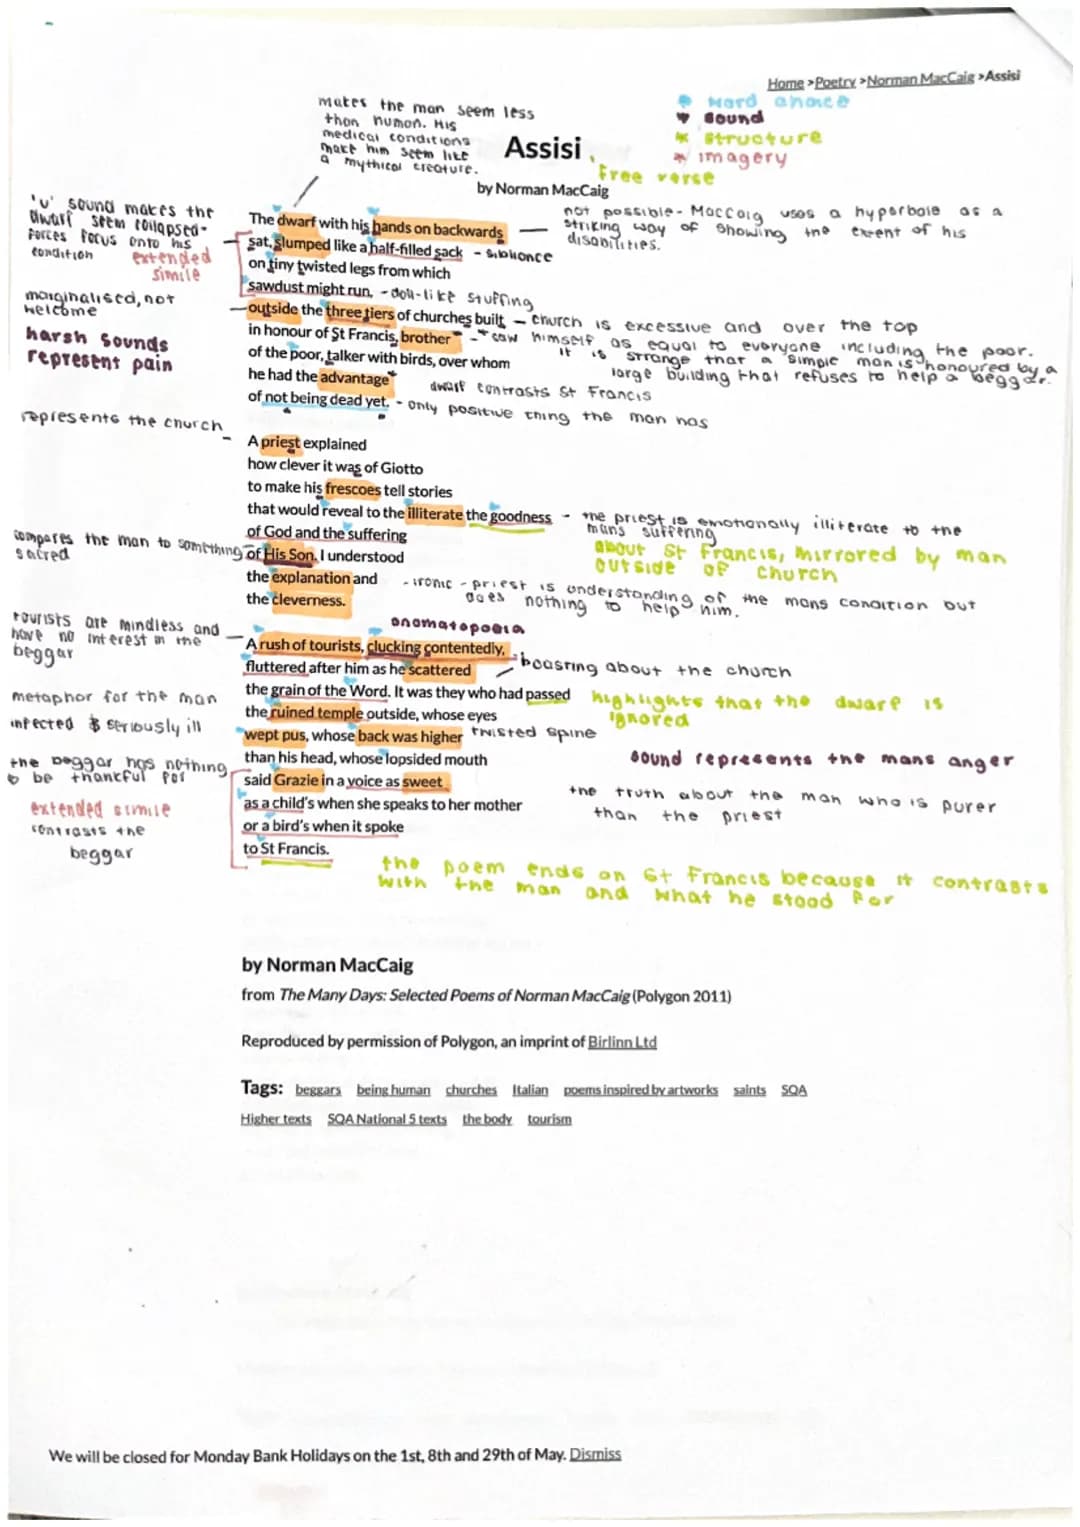 Home >Poetry >Norman MacCaig >Assisi
word choice
sound
structure
imagery
makes the man seem less
than human. His
medical conditions
make him seem like
a mythical creature.
Assisi
free verse
by Norman MacCaig
'u' sound makes the
dwarf seem collapsed-
forces focus onto his
condition
extended
simile
The dwarf with his hands on backwards
not possible- Maccaig uses a hyperbole as a
striking way of showing the extent of his
disabilities.
sat, slumped like a half-filled sack - sibilance
on tiny twisted legs from which
sawdust might run, - doll-like stuffing
marginalised, not
welcome
harsh sounds
represent pain
outside the three tiers of churches built - church is excessive and over the top
in honour of St Francis, brother - saw himself as equal to everyone including the poor.
of the poor, talker with birds, over whom
it is strange that a simple man is honoured by a
large building that refuses to help a beggar.
he had the advantage
dwarf contrasts St Francis
of not being dead yet. - only positive thing the man has
represents the church
A priest explained
how clever it was of Giotto
to make his frescoes tell stories
that would reveal to the illiterate the goodness - the priest is emotionally illiterate to the
mans suffering
of God and the suffering
about St Francis, mirrored by man
outside of church
compares the man to something
sacred
of His Son. I understood
the explanation and - ironic - priest is understanding of the mans condition but
does nothing to help him.
the cleverness.
tourists are mindless and
have no interest in the
beggar
onomatopoeia
A rush of tourists, clucking contentedly,
fluttered after him as he scattered
boasting about the church
the grain of the Word. It was they who had passed
highlights that the dwarf is
ignored
metaphor for the man
the ruined temple outside, whose eyes
infected & seriously ill
wept pus, whose back was higher twisted spine
than his head, whose lopsided mouth
sound represents the mans anger
the beggar has nothing
to be thankful for
said Grazie in a voice as sweet
the truth about the man who is purer
than the priest
extended simile
contrasts the
beggar
as a child's when she speaks to her mother
or a bird's when it spoke
to St Francis.
the poem ends on St Francis because it contrasts
with the man and what he stood for
by Norman MacCaig
from The Many Days: Selected Poems of Norman MacCaig (Polygon 2011)
Reproduced by permission of Polygon, an imprint of Birlinn Ltd
Tags: beggars being human churches Italian poems inspired by artworks saints SQA
Higher texts SQA National 5 texts the body tourism
We will be closed for Monday Bank Holidays on the 1st, 8th and 29th of May. Dismiss